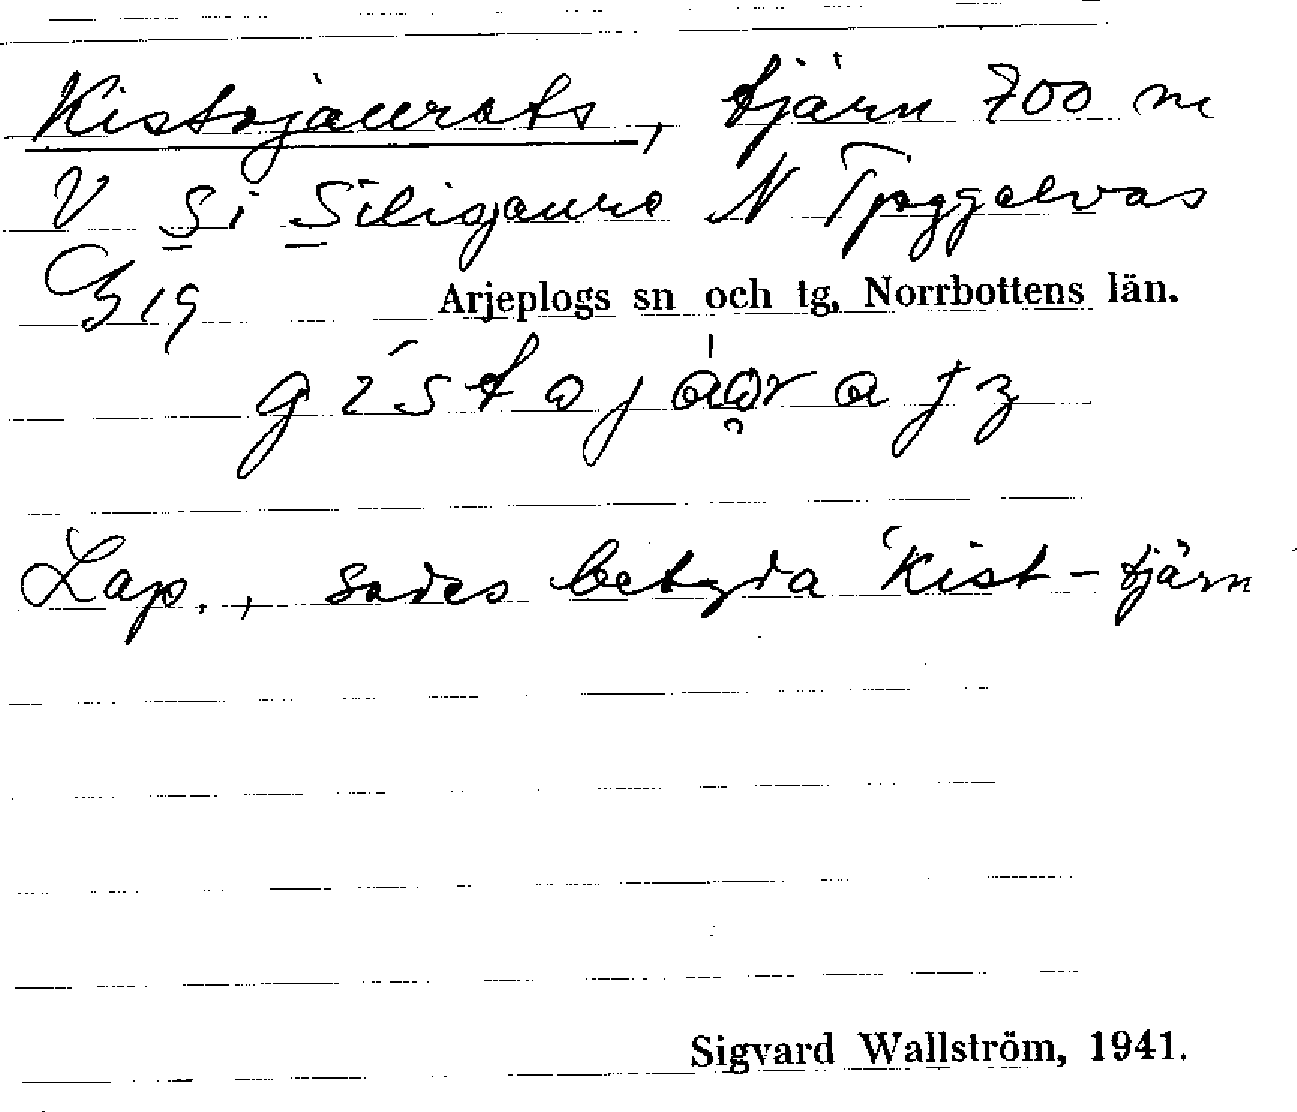 Kistojaurats, tjärn 700 m
V Si Silisjaure N Tjäggelvas
G 19
Arjeplogs sn och tg, Norrbottens län.
Lap., sades betyda Kist-tjärn
Sigvard Wallström, 1941.